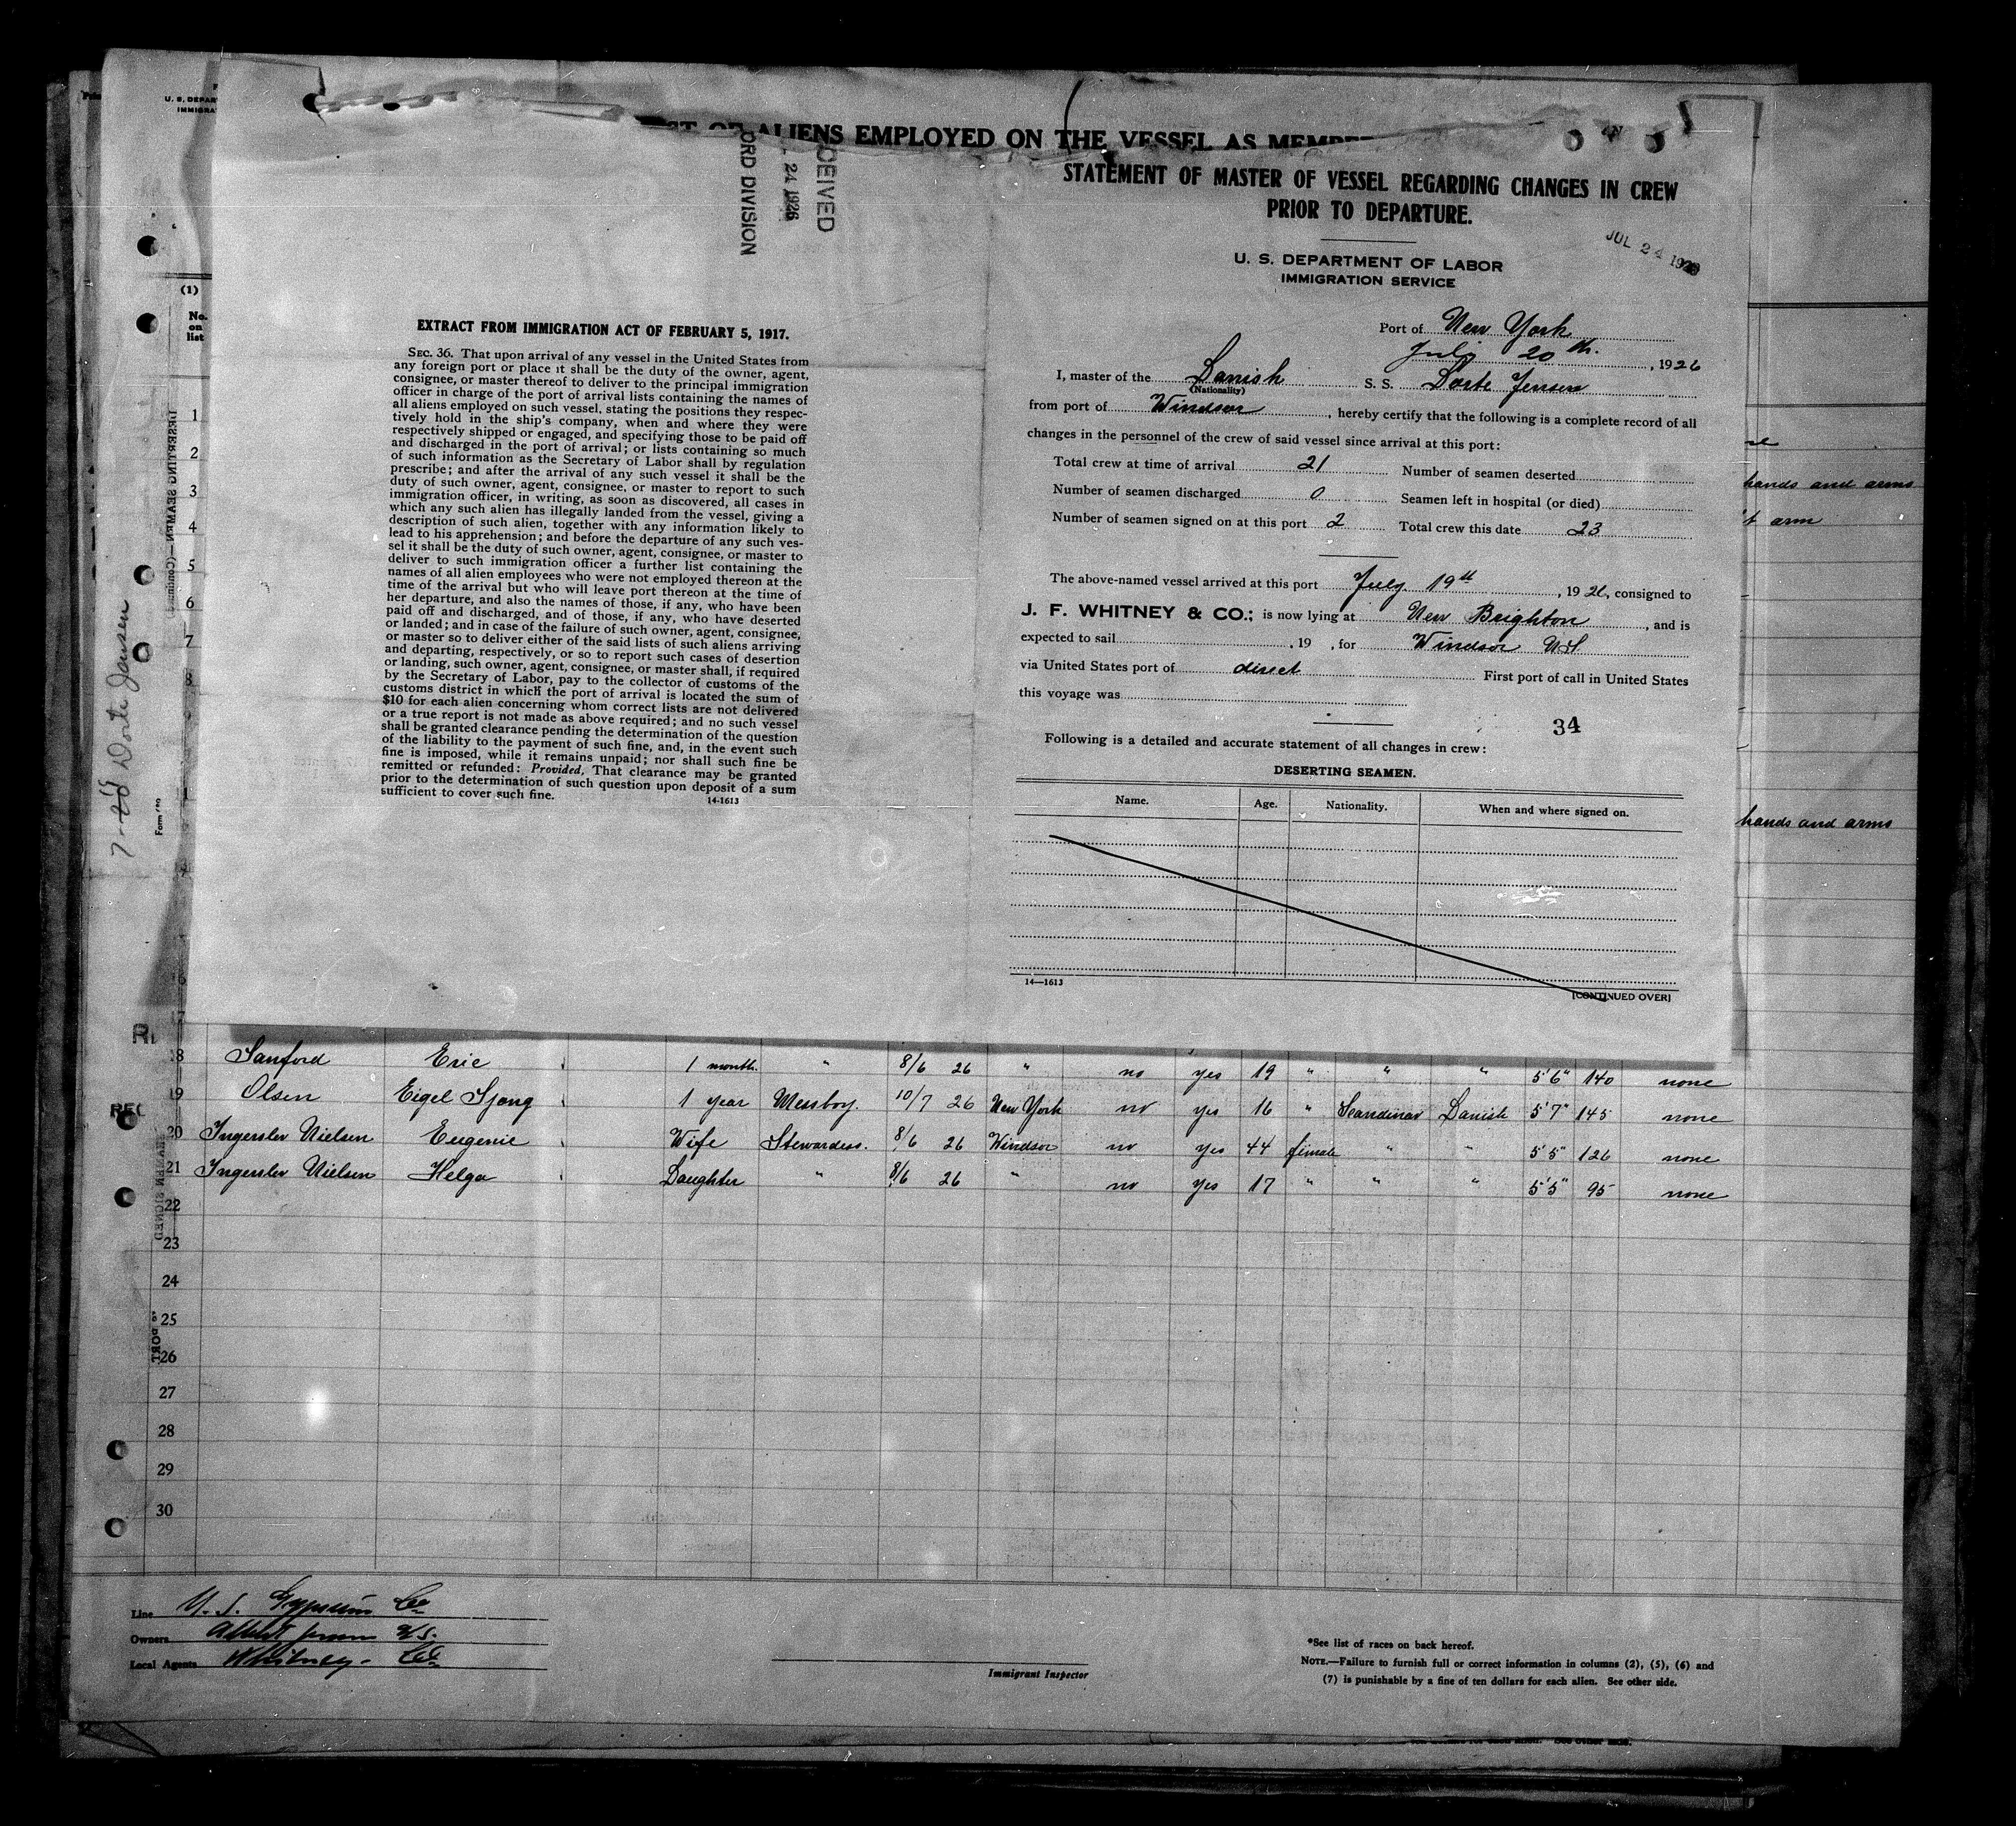 U. S. DEPAR
IMMIGRA
ST OF ALIENS EMPLOYED ON THE VESSEL AS MEMBE
ORD DIVISION
24 1926
CEIVED
(1)
No.
on
list
DESERTING SEAMEN—(Contd.)
7-20 Dorte Jensen
EXTRACT FROM IMMIGRATION ACT OF FEBRUARY 5, 1917.
SEC. 36. That upon arrival of any vessel in the United States from
any foreign port or place it shall be the duty of the owner, agent,
consignee, or master thereof to deliver to the principal immigration
officer in charge of the port of arrival lists containing the names of
all aliens employed on such vessel, stating the positions they respec-
tively hold in the ship's company, when and where they were
respectively shipped or engaged, and specifying those to be paid off
and discharged in the port of arrival; or lists containing so much
of such information as the Secretary of Labor shall by regulation
prescribe; and after the arrival of any such vessel it shall be the
duty of such owner, agent, consignee, or master to report to such
immigration officer, in writing, as soon as discovered, all cases in
which any such alien has illegally landed from the vessel, giving a
description of such alien, together with any information likely to
lead to his apprehension; and before the departure of any such ves-
sel it shall be the duty of such owner, agent, consignee, or master to
deliver to such immigration officer a further list containing the
names of all alien employees who were not employed thereon at the
time of the arrival but who will leave port thereon at the time of
her departure, and also the names of those, if any, who have been
paid off and discharged, and of those, if any, who have deserted
or landed; and in case of the failure of such owner, agent, consignee,
or master so to deliver either of the said lists of such aliens arriving
and departing, respectively, or so to report such cases of desertion
or landing, such owner, agent, consignee, or master shall, if required
by the Secretary of Labor, pay to the collector of customs of the
customs district in which the port of arrival is located the sum of
$10 for each alien concerning whom correct lists are not delivered
or a true report is not made as above required; and no such vessel
shall be granted clearance pending the determination of the question
of the liability to the payment of such fine, and, in the event such
fine is imposed, while it remains unpaid; nor shall such fine be
remitted or refunded: Provided, That clearance may be granted
prior to the determination of such question upon deposit of a sum
sufficient to cover such fine.
14-1613
STATEMENT OF MASTER OF VESSEL REGARDING CHANGES IN CREW
PRIOR TO DEPARTURE.
JUL 24 1926
U. S. DEPARTMENT OF LABOR
IMMIGRATION SERVICE
Port of New York
July 20th., 1926
I, master of the Danish S. S. Dorte Jensen
(Nationality)
from port of Windsor, hereby certify that the following is a complete record of all
changes in the personnel of the crew of said vessel since arrival at this port:
Total crew at time of arrival 21 Number of seamen deserted
Number of seamen discharged 0 Seamen left in hospital (or died)
Number of seamen signed on at this port 2 Total crew this date 23
The above-named vessel arrived at this port July 19th, 1926, consigned to
J. F. WHITNEY & CO.; is now lying at New Brighton, and is
expected to sail , 19 , for Windsor NS
via United States port of direct First port of call in United States
this voyage was
34
Following is a detailed and accurate statement of all changes in crew:
DESERTING SEAMEN.
Name. Age. Nationality. When and where signed on.
14—1613
[CONTINUED OVER]
hands and arms
arm
hands and arms
1
2
3
4
5
6
7
8
18 Sanford Eric 1 month " 8/6 26 " no yes 19 " " " 5'6" 140 none
19 Olsen Eigel Sjong 1 year Messboy. 10/7 26 New York no yes 16 " Scandinav Danish 5'7" 145 none
20 Ingerslev Nielsen Eugenie Wife Stewardess. 8/6 26 Windsor no yes 44 female " " 5'5" 126 none
21 Ingerslev Nielsen Helga Daughter " 8/6 26 " no yes 17 " " " 5'5" 95 none
22
23
24
25
26
27
28
29
30
Line U. S. Gypsum Co
Owners Albert Jensen
Local Agents Whitney Co
Immigrant Inspector
*See list of races on back hereof.
NOTE.—Failure to furnish full or correct information in columns (2), (5), (6) and
(7) is punishable by a fine of ten dollars for each alien. See other side.